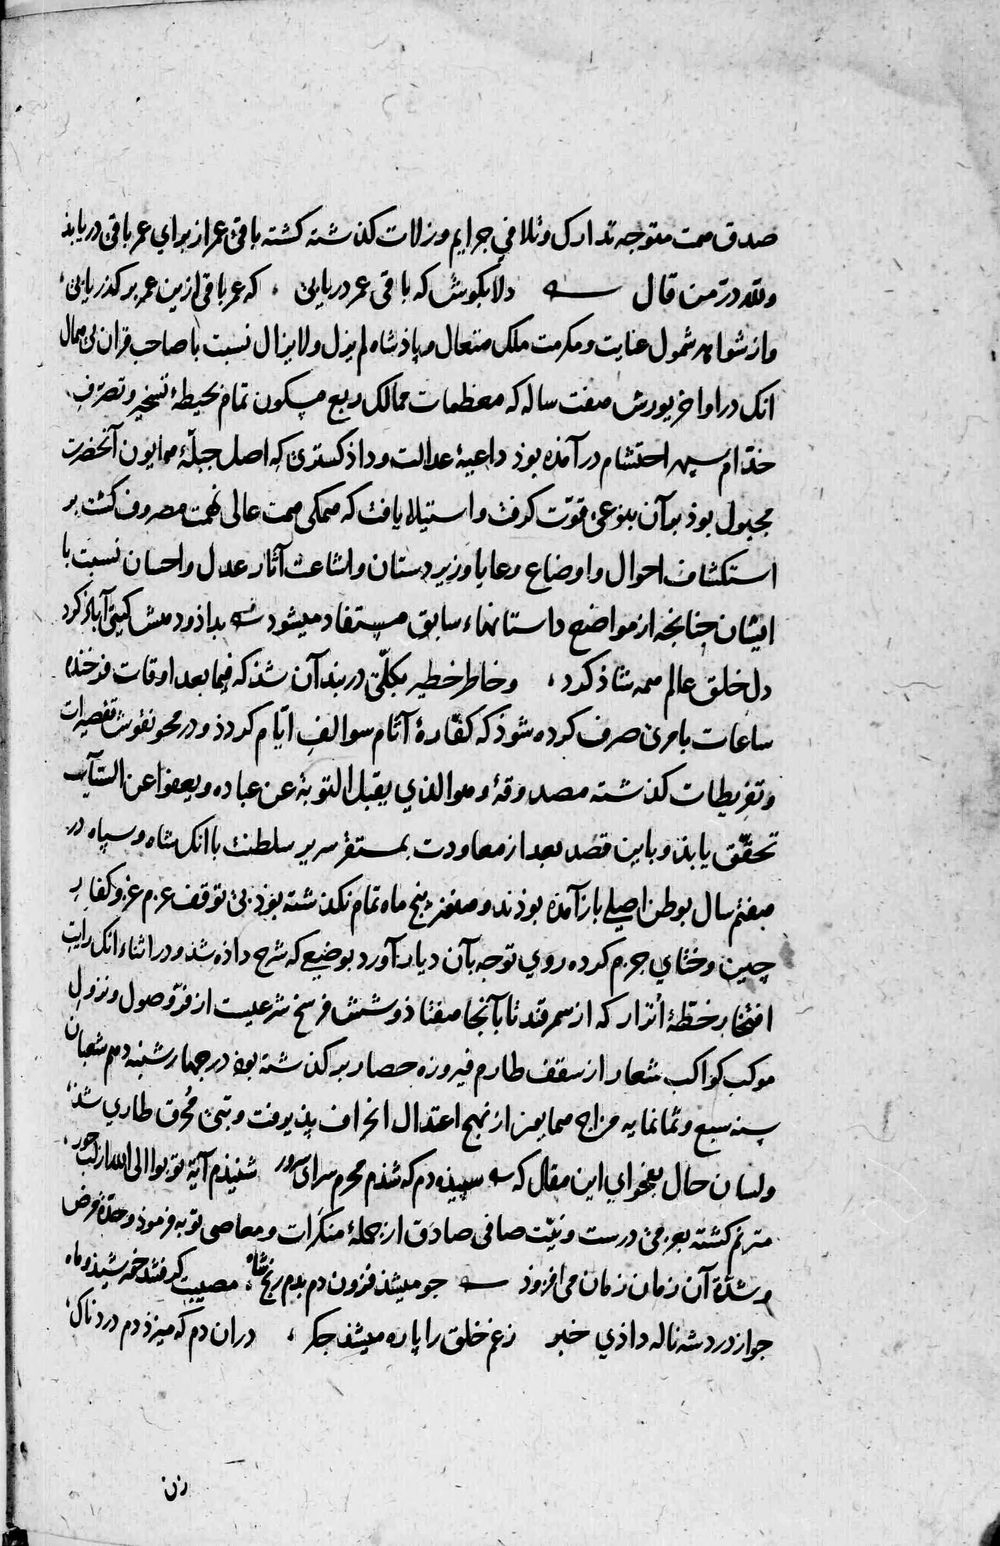 صدق همت متوجه تدارک و تلافی جرایم و زلات کذشته کشته باقئ عمر از برای عمر باقی دریابد
ولله درّ من قال دلا بکوش که باقی عمر دریابی که عمر باقی ازین عمر بر کذر یابی
و از شواهد شمول عنایت و مکرمت ملک متعال و پاذشاه لم یزل ولا یزال نسبت با صاحب قران بی همال
انک در اواخر یورش هفت ساله که معظمات ممالک ربع مسکون تمام بحیطۀ تسخیر و تصرف
خدّام سپهر احتشام درآمذه بوذ داعیۀ عدالت و داذ کستری که اصل جبلّۀ همایون آنحضرت
مجبول بوذ بر آن بنوعی قوّت کرفت و استیلا یافت که همکی همت عالی نهمت مصروف کشت بر
استکشاف احوال و اوضاع رعایا و زیردستان و اشاعت آثار عدل و احسان نسبت با
ایشان چنانچه از مواضع داستانهاء سابق مستفاد میشود بداذ و دهش کیتی آباذ کرد
دل خلق عالم همه شاذ کرد و خاطر خطیر بکلّی در بند آن شذ که فیما بعد اوقات فرخنده
ساعات بامری صرف کرده شوذ که کفّارۀ آثام سوالف ایّام کردذ و در محو نقوش تقصیرات
و تفریطات کذشته مصدوقۀ وهو الذی یقبل التوبة عن عباده ویعفوا عن السیّآت
تحقّق یابذ و باین قصد بعد از معاودت بمستقر سریر سلطنت با انک شاه و سپاه در
هفتم سال بوطن اصلی باز آمذه بوذند و هنوز پنج ماه تمام نکذشته بوذ بی توقف عزم غزو کفار
چین و ختای جزم کرده روی توجه بآن دیار آورد بوضعی که شرح داذه شذ و در اثناء انک رایت
افتخار خطّۀ اترار که از سمرقند تا بآنجا هفتاذ و شش فرسخ شرعیست از فرّ وصول و نزول
موکب کواکب شعار از سقف طارم فیروزه حصار بر کذشته بوذ در چهارشنبه دهم شعبان
سنه سبع و ثمانمایه مزاج همایون از نهج اعتدال انحراف پذیرفت و تبی محرق طاری شذ
و لسان حال بفحوای این مقال که سپیذه دم که شذم محرم سرای سرور شنیذم آیۀ توبوا الی الله از لب حور
مترنم کشته بعزمی درست و نیّت صافی صادق از جملۀ منکرات و معاصی توبه فرموذ و حدّۀ مرض
و شدّة آن زمان زمان می افزوذ جو میشذ فزون دم بدم رنج شاه مصیبت کرفتند خورشیذ و ماه
جو از درد شه ناله داذی خبر ز غم خلق را پاره میشذ جکر دران دم که میزد دم دردناک
زن